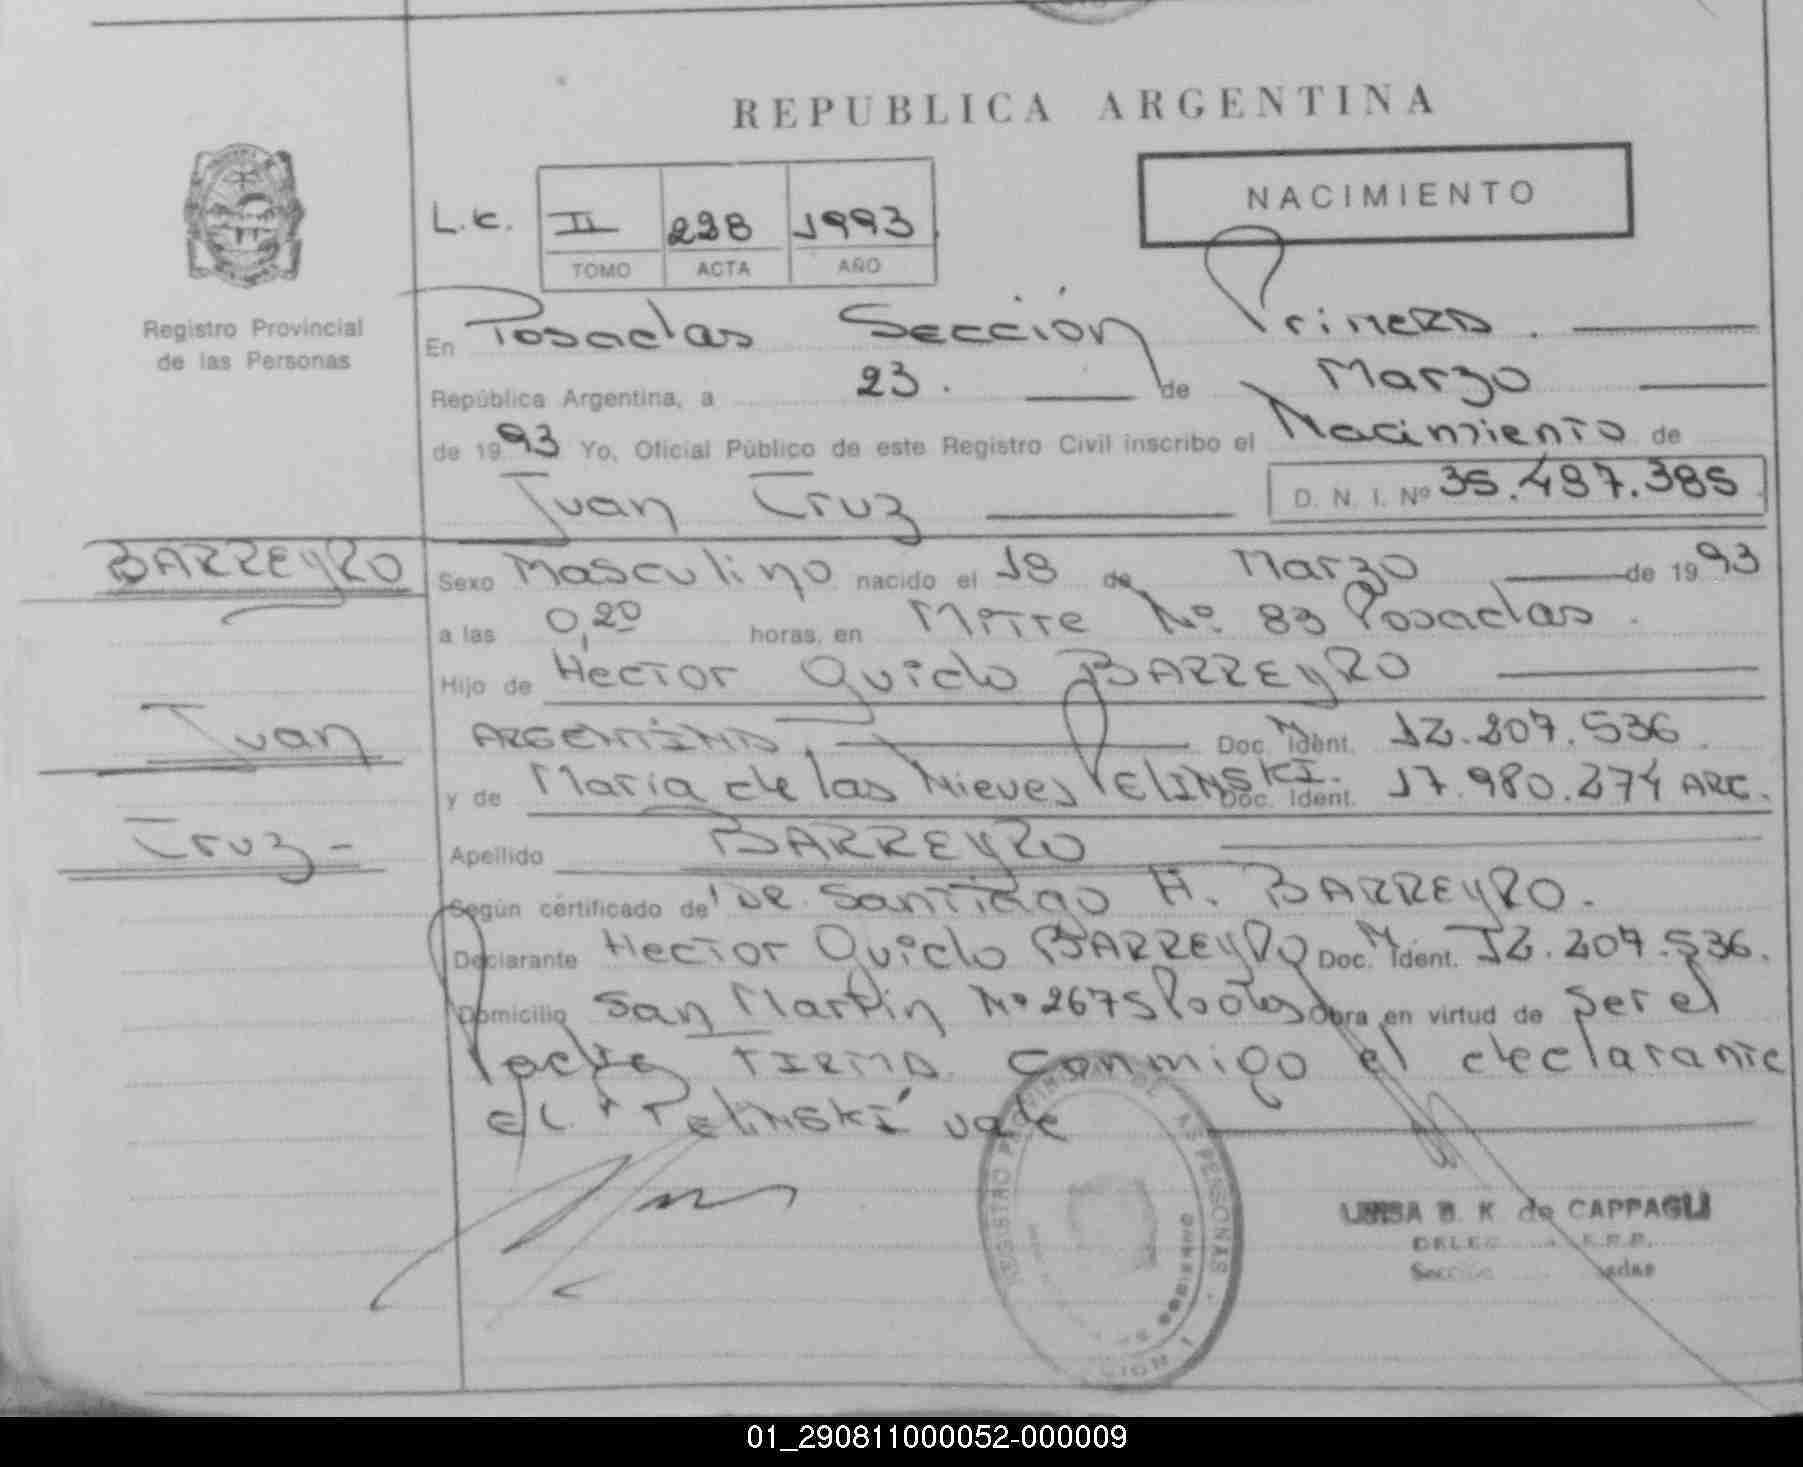 REPUBLICA ARGENTINA
NACIMIENTO
L.C. II 238 1993
TOMO ACTA AÑO
Registro Provincial
de las Personas
En Posadas Sección Primera.
República Argentina, a 23. de Marzo
de 1993 Yo, Oficial Público de este Registro Civil inscribo el Nacimiento de
Juan Cruz D. N. I. Nº 35.497.385
BARREYRO
Juan
Cruz-
Sexo Masculino nacido el 18 de Marzo de 1993
a las 0,20 horas, en Mitre Nº 83 Posadas.
Hijo de Héctor Guido BARREYRO
ARGENTINO, Doc. M. Ident. 12.207.536.
y de María de las Nieves PELINSKI. Doc. Ident. 17.980.274 ARG.
Apellido BARREYRO
Según certificado de DR. Santiago H. BARREYRO.
Declarante Hector Guido BARREYRO Doc. M. Ident. 12.207.536.
Domicilio San Martín Nº 2675 Pdas Obra en virtud de ser el
Padre FIRMA conmigo el declarante
E/L. "PELINSKI" vale
REGISTRO PROVINCIAL DE LAS PERSONAS
LUISA B. K. de CAPPAGLI
01_290811000052-000009